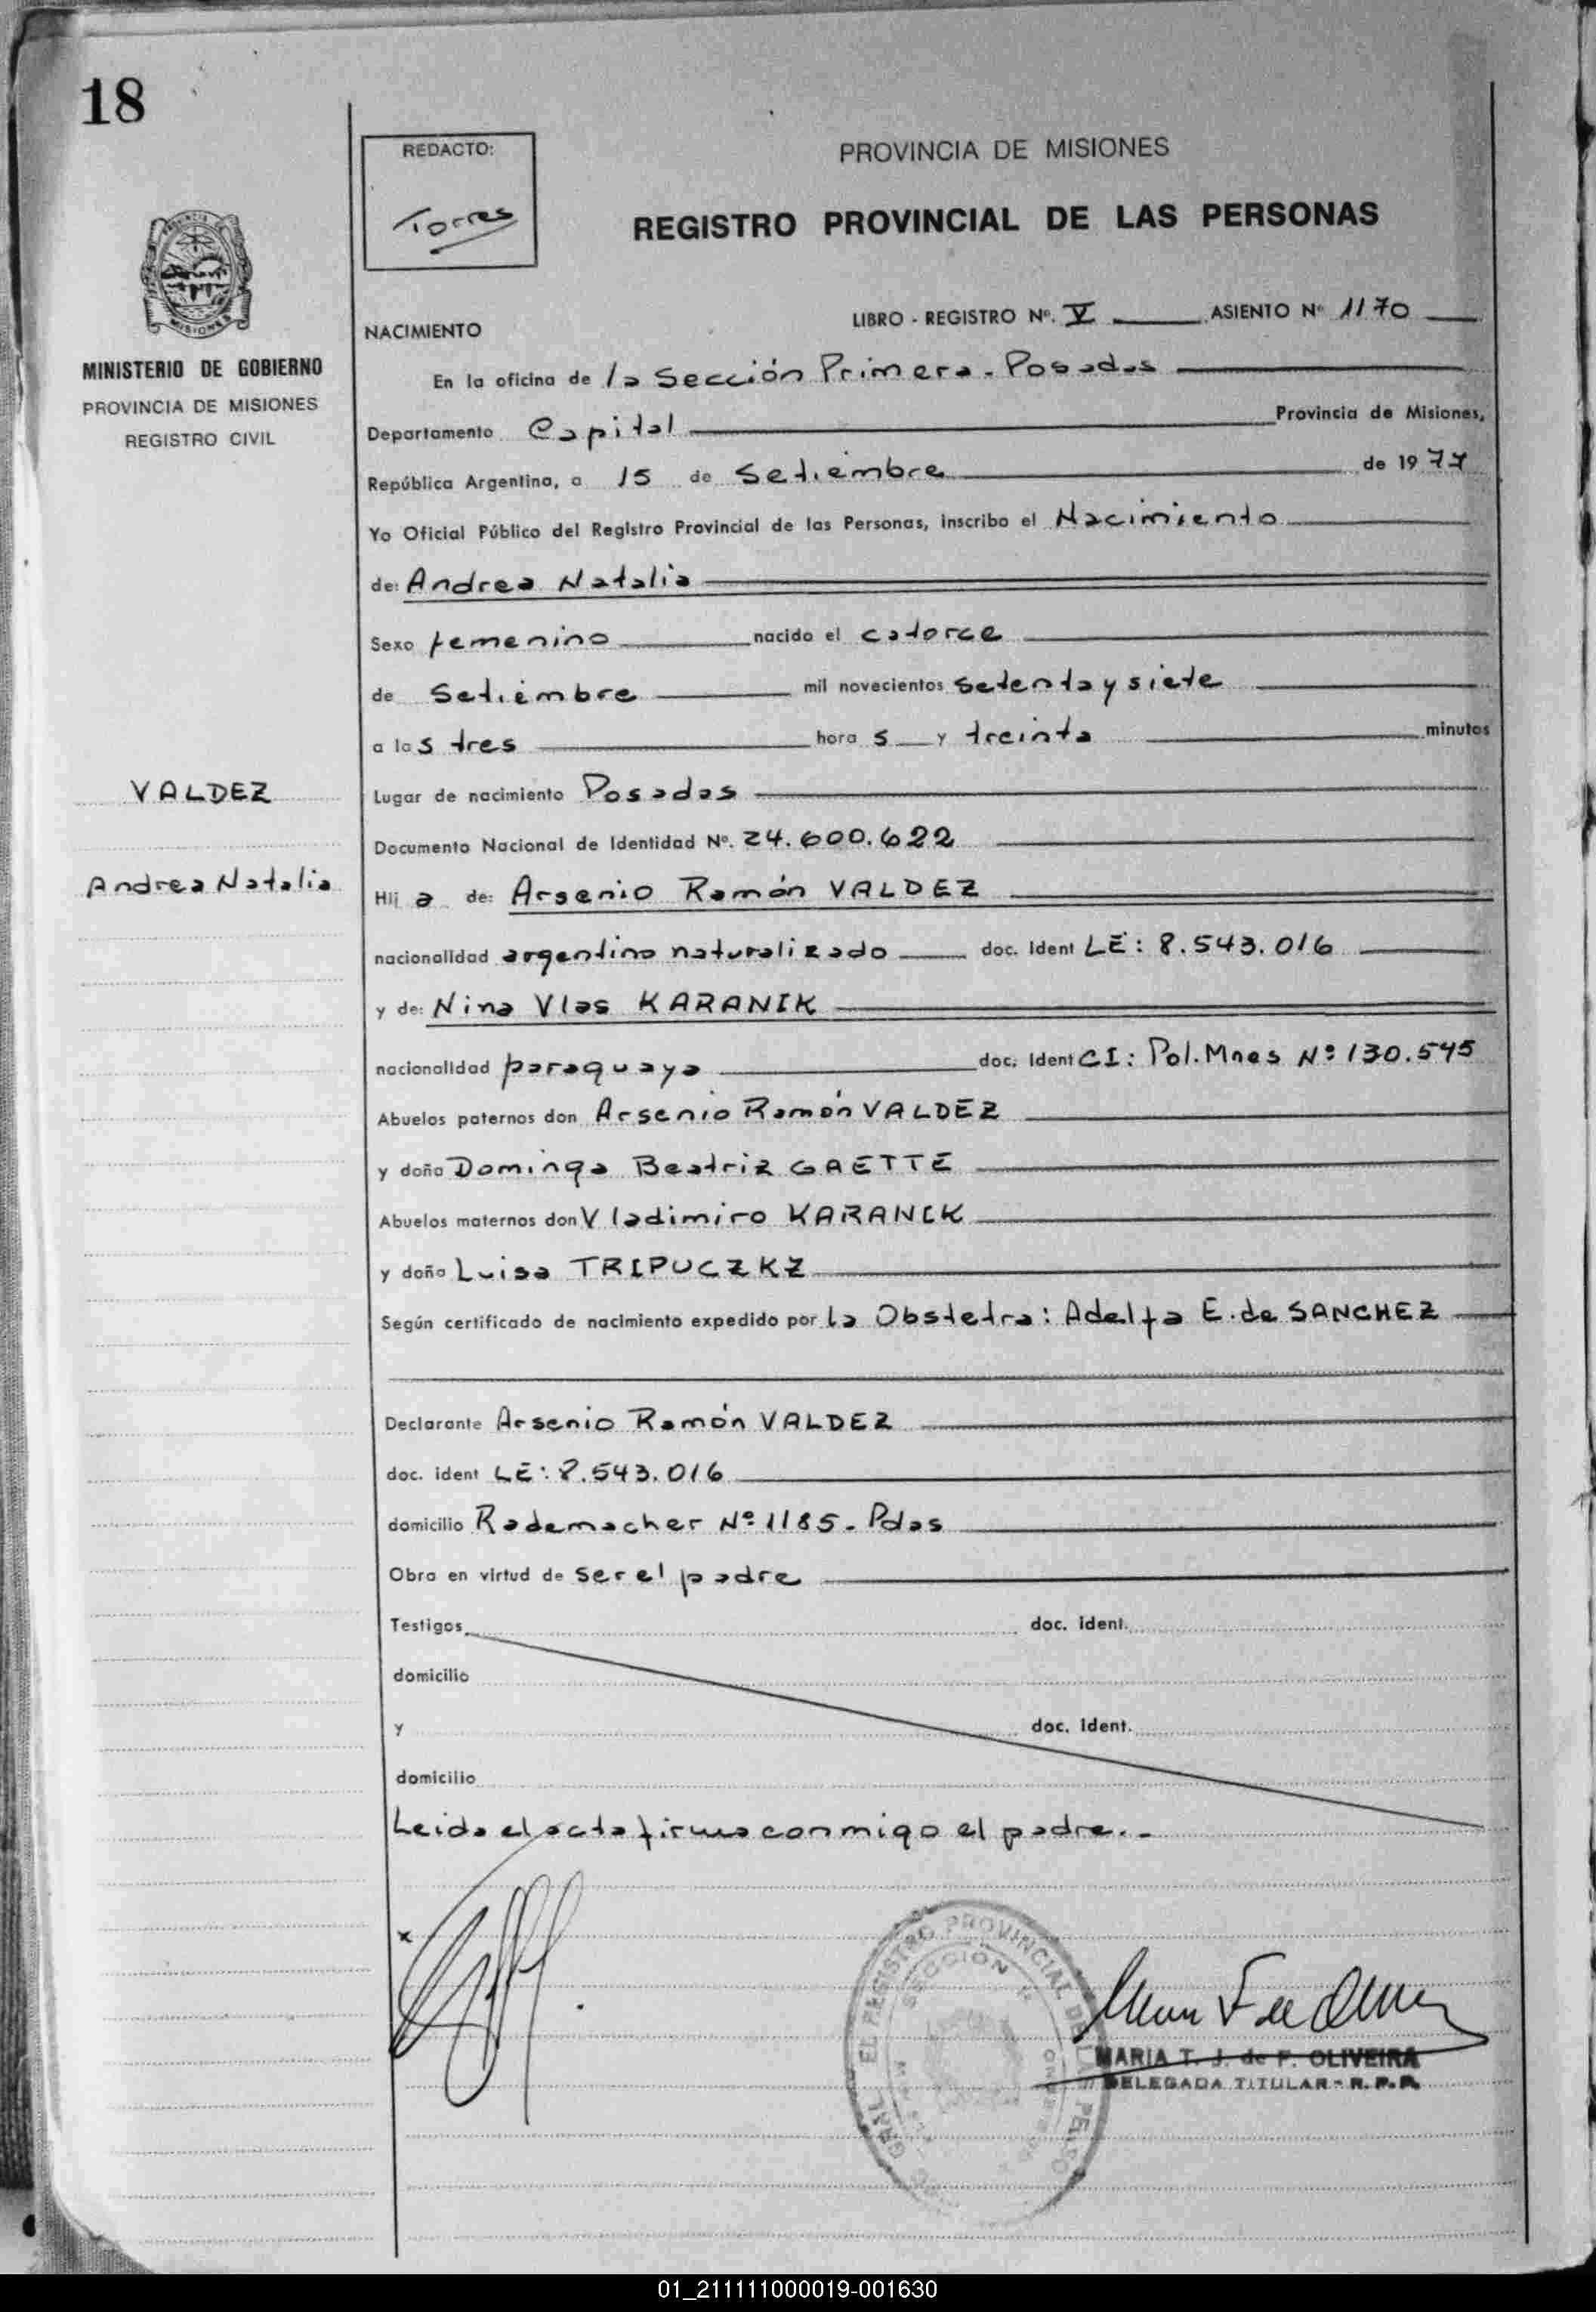 18
REDACTO:
Torres
PROVINCIA DE MISIONES
REGISTRO PROVINCIAL DE LAS PERSONAS
MISIONES
MINISTERIO DE GOBIERNO
PROVINCIA DE MISIONES
REGISTRO CIVIL
NACIMIENTO
LIBRO - REGISTRO Nº. V ASIENTO Nº 1170
En la oficina de la Sección Primera - Posadas
Departamento Capital Provincia de Misiones,
República Argentina, a 15 de Setiembre de 1977
Yo Oficial Público del Registro Provincial de las Personas, inscribo el Nacimiento
de: Andrea Natalia
Sexo femenino nacido el catorce
de Setiembre mil novecientos setenta y siete
a las tres horas y treinta minutos
VALDEZ
Lugar de nacimiento Posadas
Documento Nacional de Identidad Nº. 24.600.622
Andrea Natalia
Hija de: Arsenio Ramón VALDEZ
nacionalidad argentino naturalizado doc. ident LE: 8.543.016
y de: Nina Vlas KARANIK
nacionalidad paraguaya doc. ident CI: Pol. Mnes Nº 130.545
Abuelos paternos don Arsenio Ramón VALDEZ
y doña Dominga Beatriz GAETTE
Abuelos maternos don Vladimiro KARANIK
y doña Luisa TRIPUCZKZ
Según certificado de nacimiento expedido por la Obstetra: Adelfa E. de SANCHEZ
Declarante Arsenio Ramón VALDEZ
doc. ident LE: 8.543.016
domicilio Rademacher Nº 1185 - Pdas
Obra en virtud de ser el padre
Testigos doc. ident.
domicilio
y doc. ident.
domicilio
Leida el acta firma conmigo el padre.-
x
GRAL EL REGISTRO PROVINCIAL DE
SECCION
MARIA T. J. de F. OLIVEIRA
DELEGADA TITULAR - R. P. P.
01_211111000019-001630